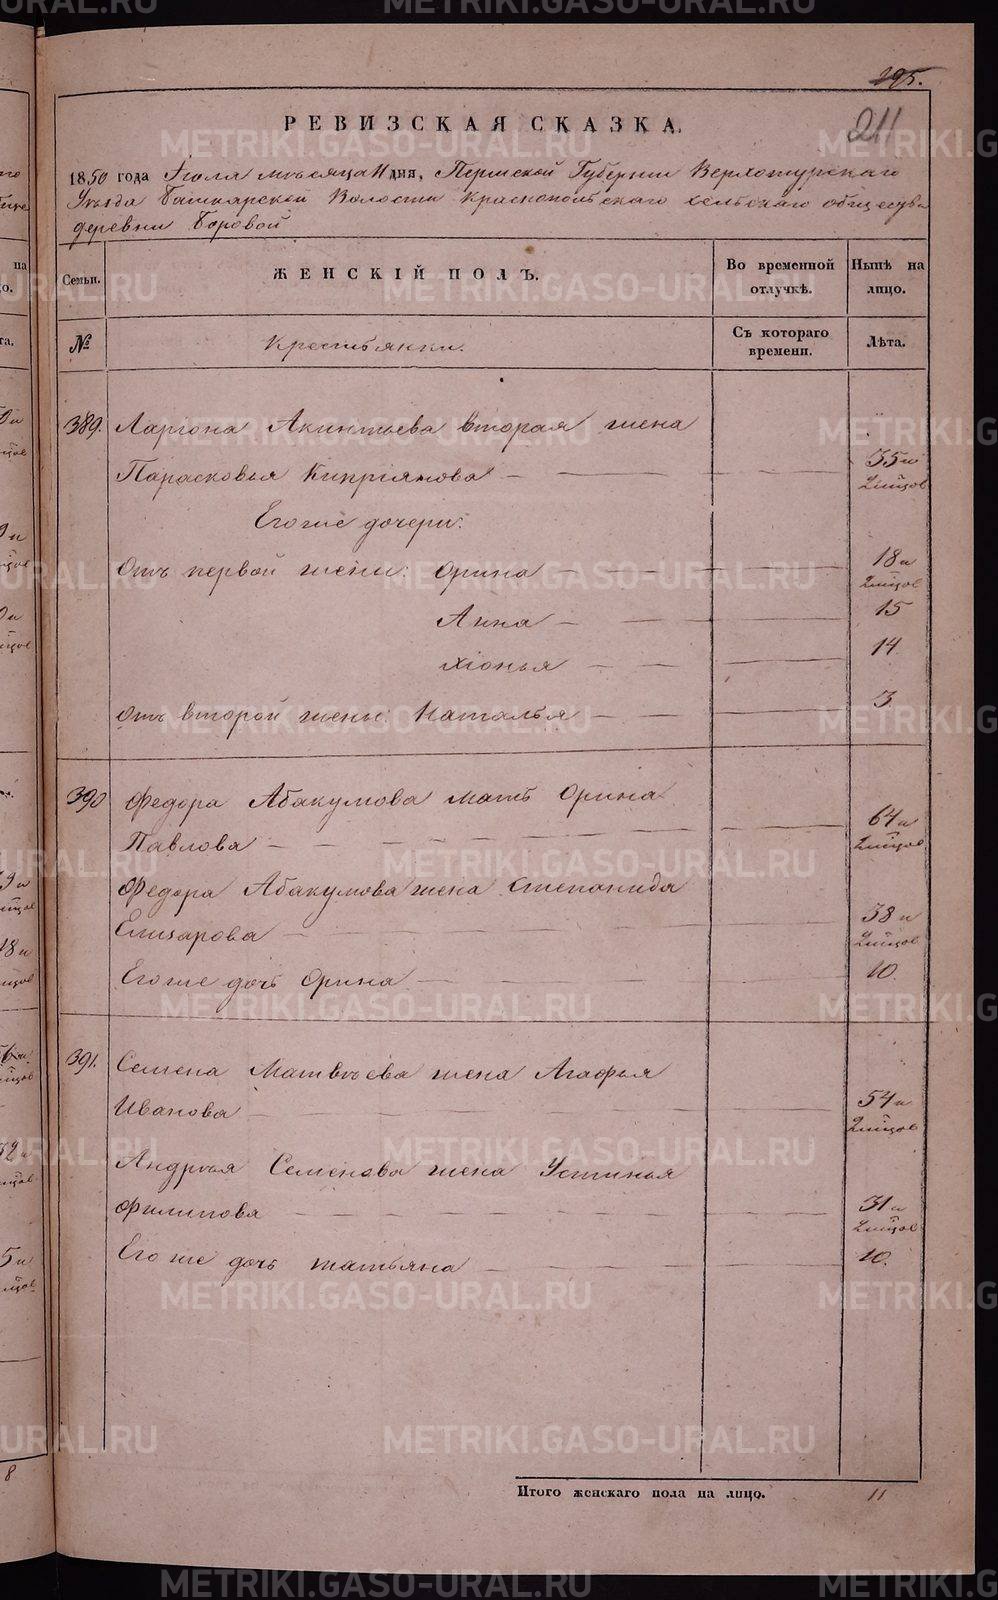 295.
211
РЕВИЗСКАЯ СКАЗКА.
1850 года Июля мѣсяца 11 дня, Пермской Губернии Верхотурскаго
Уѣзда Башкарской Волости Краснопольскаго сельскаго общества
деревни Боровой
Семьи. ЖЕНСКІЙ ПОЛЪ. Во временной отлучкѣ. Нынѣ на лицо.
№ Крестьянки. Съ котораго времени. Лѣта.
389. Ларіона Акинтьева вторая жена
Парасковья Кипріянова 35 и
Его же дочери:
Отъ первой жены: Орина 18 и
Анна 15
Хіонья 14
Отъ второй жены: Наталья 3
390 Федора Абакумова мать Орина
Павлова 64 и
Федора Абакумова жена Степанида
Елизарова 38 и
Его же дочь Орина 10.
391. Семена Матвѣева жена Агафья
Иванова 54 и
Андрѣя Семенова жена Устинья
Филипова 31 и
Его же дочь Татьяна 10.
Итого женскаго пола на лицо. 11
8
METRIKI.GASO-URAL.RU